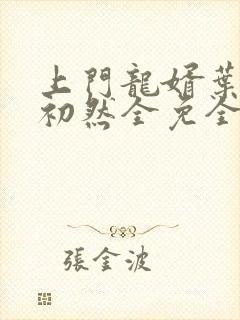 上門龍婿葉
初然全免全
張金波